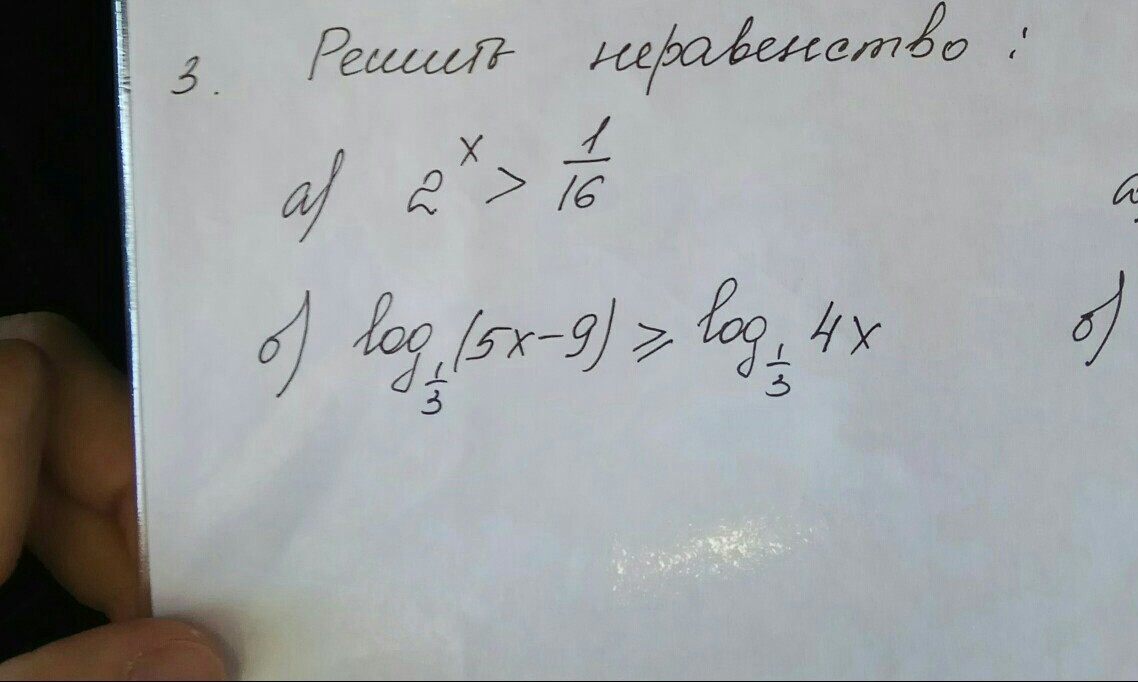 3. Решить неравенство:
а) 2^x > 1/16
а
б) log_{1/3}(5x-9) ⩾ log_{1/3} 4x
б)